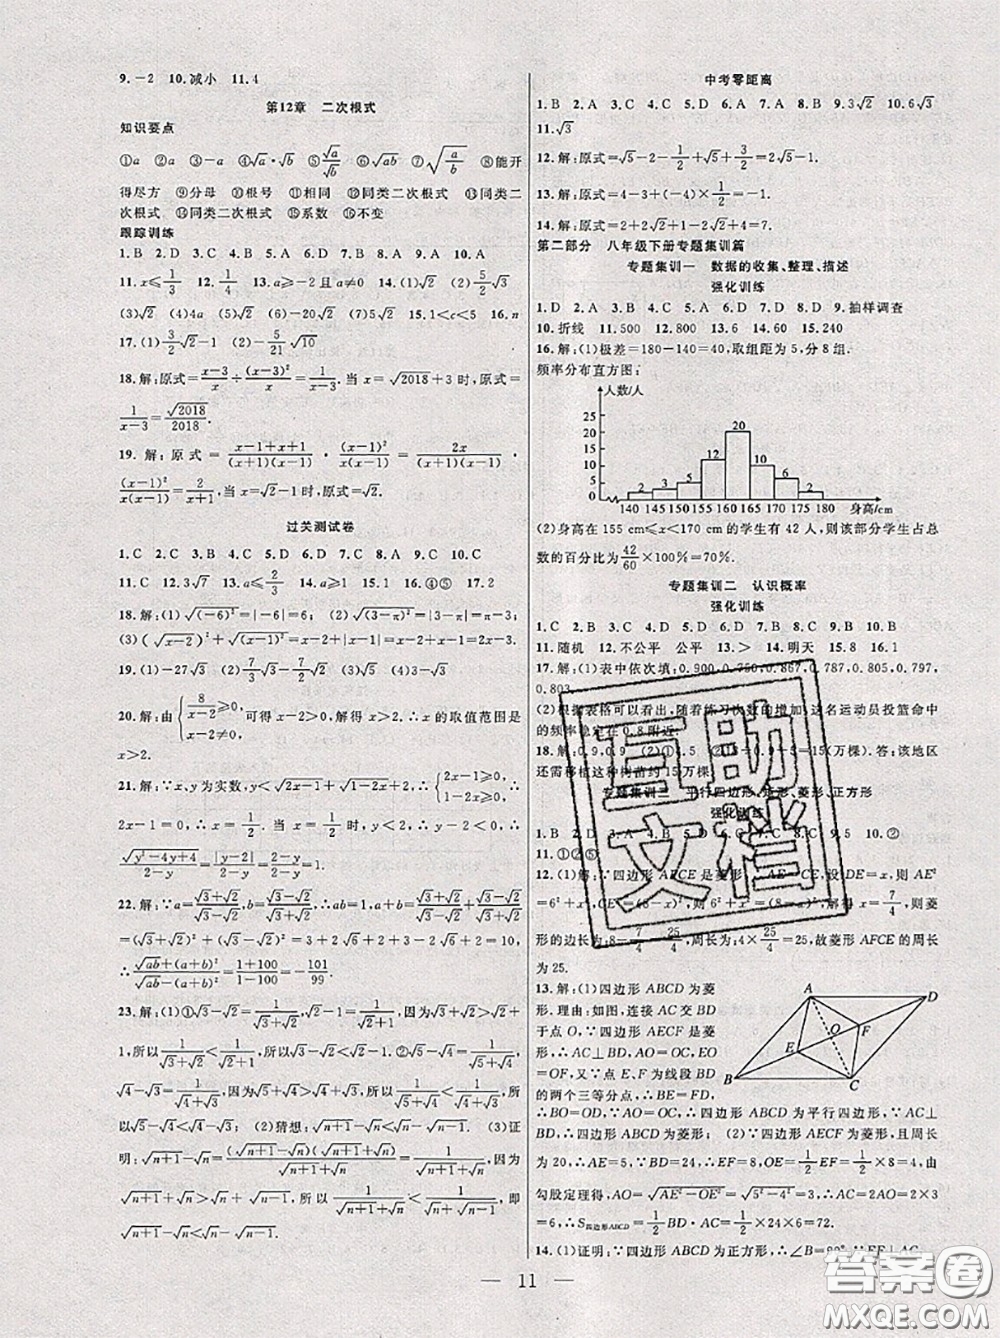 9.－2　10.减小　11.4
第12章　二次根式
知识要点
①a　②a　③－a　④√a·√b　⑤√a/√b　⑥√ab　⑦√(a/b)　⑧能开
得尽方　⑨分母　⑩根号　⑪相同　⑫同类二次根式　⑬同类二
次根式　⑭同类二次根式　⑮系数　⑯不变
跟踪训练
1.B　2.D　3.C　4.D　5.B　6.D　7.C　8.A　9.A　10.A
11.x≤1/3　12.4/3　13.a≥－2且a≠0　14.(1)√2　(2)5√2/2
(3)√2　(4)4a　(5)2√5　(6)－20√2　(7)5√2　15.1<c<5　16.n
17.(1)3/2√2－√3　(2)－5/21√10
18.解:原式＝(x－3)/x÷(x－3)²/x＝1/(x－3).当x＝√2018＋3时,原式＝
1/(x－3)＝√2018/2018.
19.解:原式＝(x－1＋x＋1)/((x＋1)(x－1))·(x－1)²/(x(x－1))＝2x/((x＋1)(x－1))·
(x－1)²/(x(x－1))＝2/(x＋1),当x＝√2－1时,原式＝√2.
过关测试卷
1.C　2.C　3.A　4.C　5.B　6.D　7.D　8.C　9.C　10.C
11.C　12.3√7　13.a≤2/3　14.a≥1　15.1　16.④⑤　17.2
18.解:(1)√(－6)²＝|－6|＝6;　(2)√(3－π)²＝|3－π|＝π－3;
(3)(√x－2)²＋√(x－1)²＝x－2＋|x－1|＝x－2＋x－1＝2x－3.
19.(1)－27√3　(2)7/3√3－7/2√2　(3)6－√5　(4)3－√3
20.解:由{8/(x－2)≥0, x－2≠0,可得x－2>0,解得x>2.∴x的取值范围是
x>2.
21.解:∵x,y为实数,y<√2x－1＋√1－2x＋2,∴{2x－1≥0, 1－2x≥0,∴
2x－1＝0,∴x＝1/2,当x＝1/2时,y<2,∴y－2<0,∴
√(y²－4y＋4)/(2－y)＝|y－2|/(2－y)＝(2－y)/(2－y)＝1.
22.解:∵a＝(√3＋√2)/(√3－√2),b＝(√3－√2)/(√3＋√2),∴ab＝1,a＋b＝(√3＋√2)/(√3－√2)＋(√3－√2)/(√3＋√2)
＝(√3＋√2)²＋(√3－√2)²＝3＋2√6＋2＋3－2√6＋2＝10.
∴(√ab＋(a＋b)²)/(√ab－(a＋b)²)＝(1＋100)/(1－100)＝－101/99.
23.解:(1)①√3－√2＝1/(√3＋√2),√2－1＝1/(√2＋1),因为√3＋√2>√2＋
1,所以1/(√3＋√2)<1/(√2＋1),所以√3－√2<√2－1.②√5－√4＝1/(√5＋√4),
√4－√3＝1/(√4＋√3),因为√5＋√4>√4＋√3,所以1/(√5＋√4)<1/(√4＋√3),所以
√5－√4<√4－√3;　(2)猜想:√n＋1－√n<√n－√n－1.　(3)证
明:√n＋1－√n＝(√n＋1－√n)(√n＋1＋√n)/(√n＋1＋√n)＝1/(√n＋1＋√n),因为
√n＋1＋√n>√n＋√n－1,所以1/(√n＋1＋√n)<1/(√n＋√n－1),即
√n＋1－√n<√n－√n－1.
中考零距离
1.B　2.A　3.C　4.D　5.B　6.A　7.D　8.B　9.3√2　10.6√3
11.√3
12.解:原式＝√5－2－1/2＋√5＋3/2＝2√5－1.
13.解:原式＝4－3＋(－4)×1/2＝－1.
14.解:原式＝2＋2√2＋1－2√2＋4＝7.
第二部分　八年级下册专题集训篇
专题集训一　数据的收集、整理、描述
强化训练
1.D　2.A　3.C　4.A　5.D　6.B　7.D　8.D　9.抽样调查
10.折线　11.500　12.800　13.6　14.60　15.240
16.解:(1)极差＝180－140＝40,取组距为5,分8组.
频率分布直方图:
人数/人
25
20
15
10
5
0
2 3 5 12 20 10 6 2
140 145 150 155 160 165 170 175 180 身高/cm
(2)身高在155 cm≤x<170 cm的学生有42人,则该部分学生占总
数的百分比为42/60×100%＝70%.
专题集训二　认识概率
强化训练
1.C　2.B　3.D　4.C　5.D　6.C　7.C　8.B　9.B　10.B
11.随机　12.不公平　公平　13.>　14.明天　15.8　16.1
17.解:(1)表中依次填:0.900,0.750,0.867,0.787,0.805,0.797,
0.803.
(2)根据表格可以看出,随着练习次数的增加,这名运动员投篮命中
的频率稳定在0.8附近.
18.解:0.9,0.9　(2)①4.5　②18÷0.9－5＝15(万棵).答:该地区
还需移植这种树苗约15万棵.
专题集训三　平行四边形、矩形、菱形、正方形
强化训练
1.B　2.D　3.A　4.B　5.D　6.C　7.C　8.C　9.5　10.②
11.①②⑤
12.(1)解:∵四边形AFCE是菱形,∴AE＝CE,设DE＝x,则AE＝
√6²＋x²,CE＝(8－x),则√6²＋x²＝(8－x),解得x＝7/4,则菱
形的边长为:8－7/4＝25/4,周长为:4×25/4＝25,故菱形AFCE的周长
为25.
13.解:(1)四边形ABCD为菱
形.理由:如图,连接AC交BD
于点O,∵四边形AECF是菱
形,∴AC⊥BD,AO＝OC,EO
＝OF.又∵点E、F为线段BD
的两个三等分点,∴BE＝FD,
A D O F E B C
∴BO＝OD,∵AO＝OC,∴四边形ABCD为平行四边形,∵AC⊥
BD,∴四边形ABCD为菱形;　(2)∵四边形AECF为菱形,且周长
为20,∴AE＝5,∵BD＝24,∴EF＝8,OE＝1/2EF＝1/2×8＝4,由
勾股定理得,AO＝√AE²－OE²＝√5²－4²＝3,∴AC＝2AO＝2×3
＝6,∴S四边形ABCD＝1/2BD·AC＝1/2×24×6＝72.
14.(1)证明:∵四边形ABCD为正方形,∴∠B＝90°,∵EF⊥AC,
11
互助
文档
答案圈
MXQE.COM